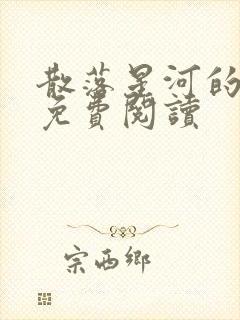 散落星河的
免費閱讀
宗西鄉